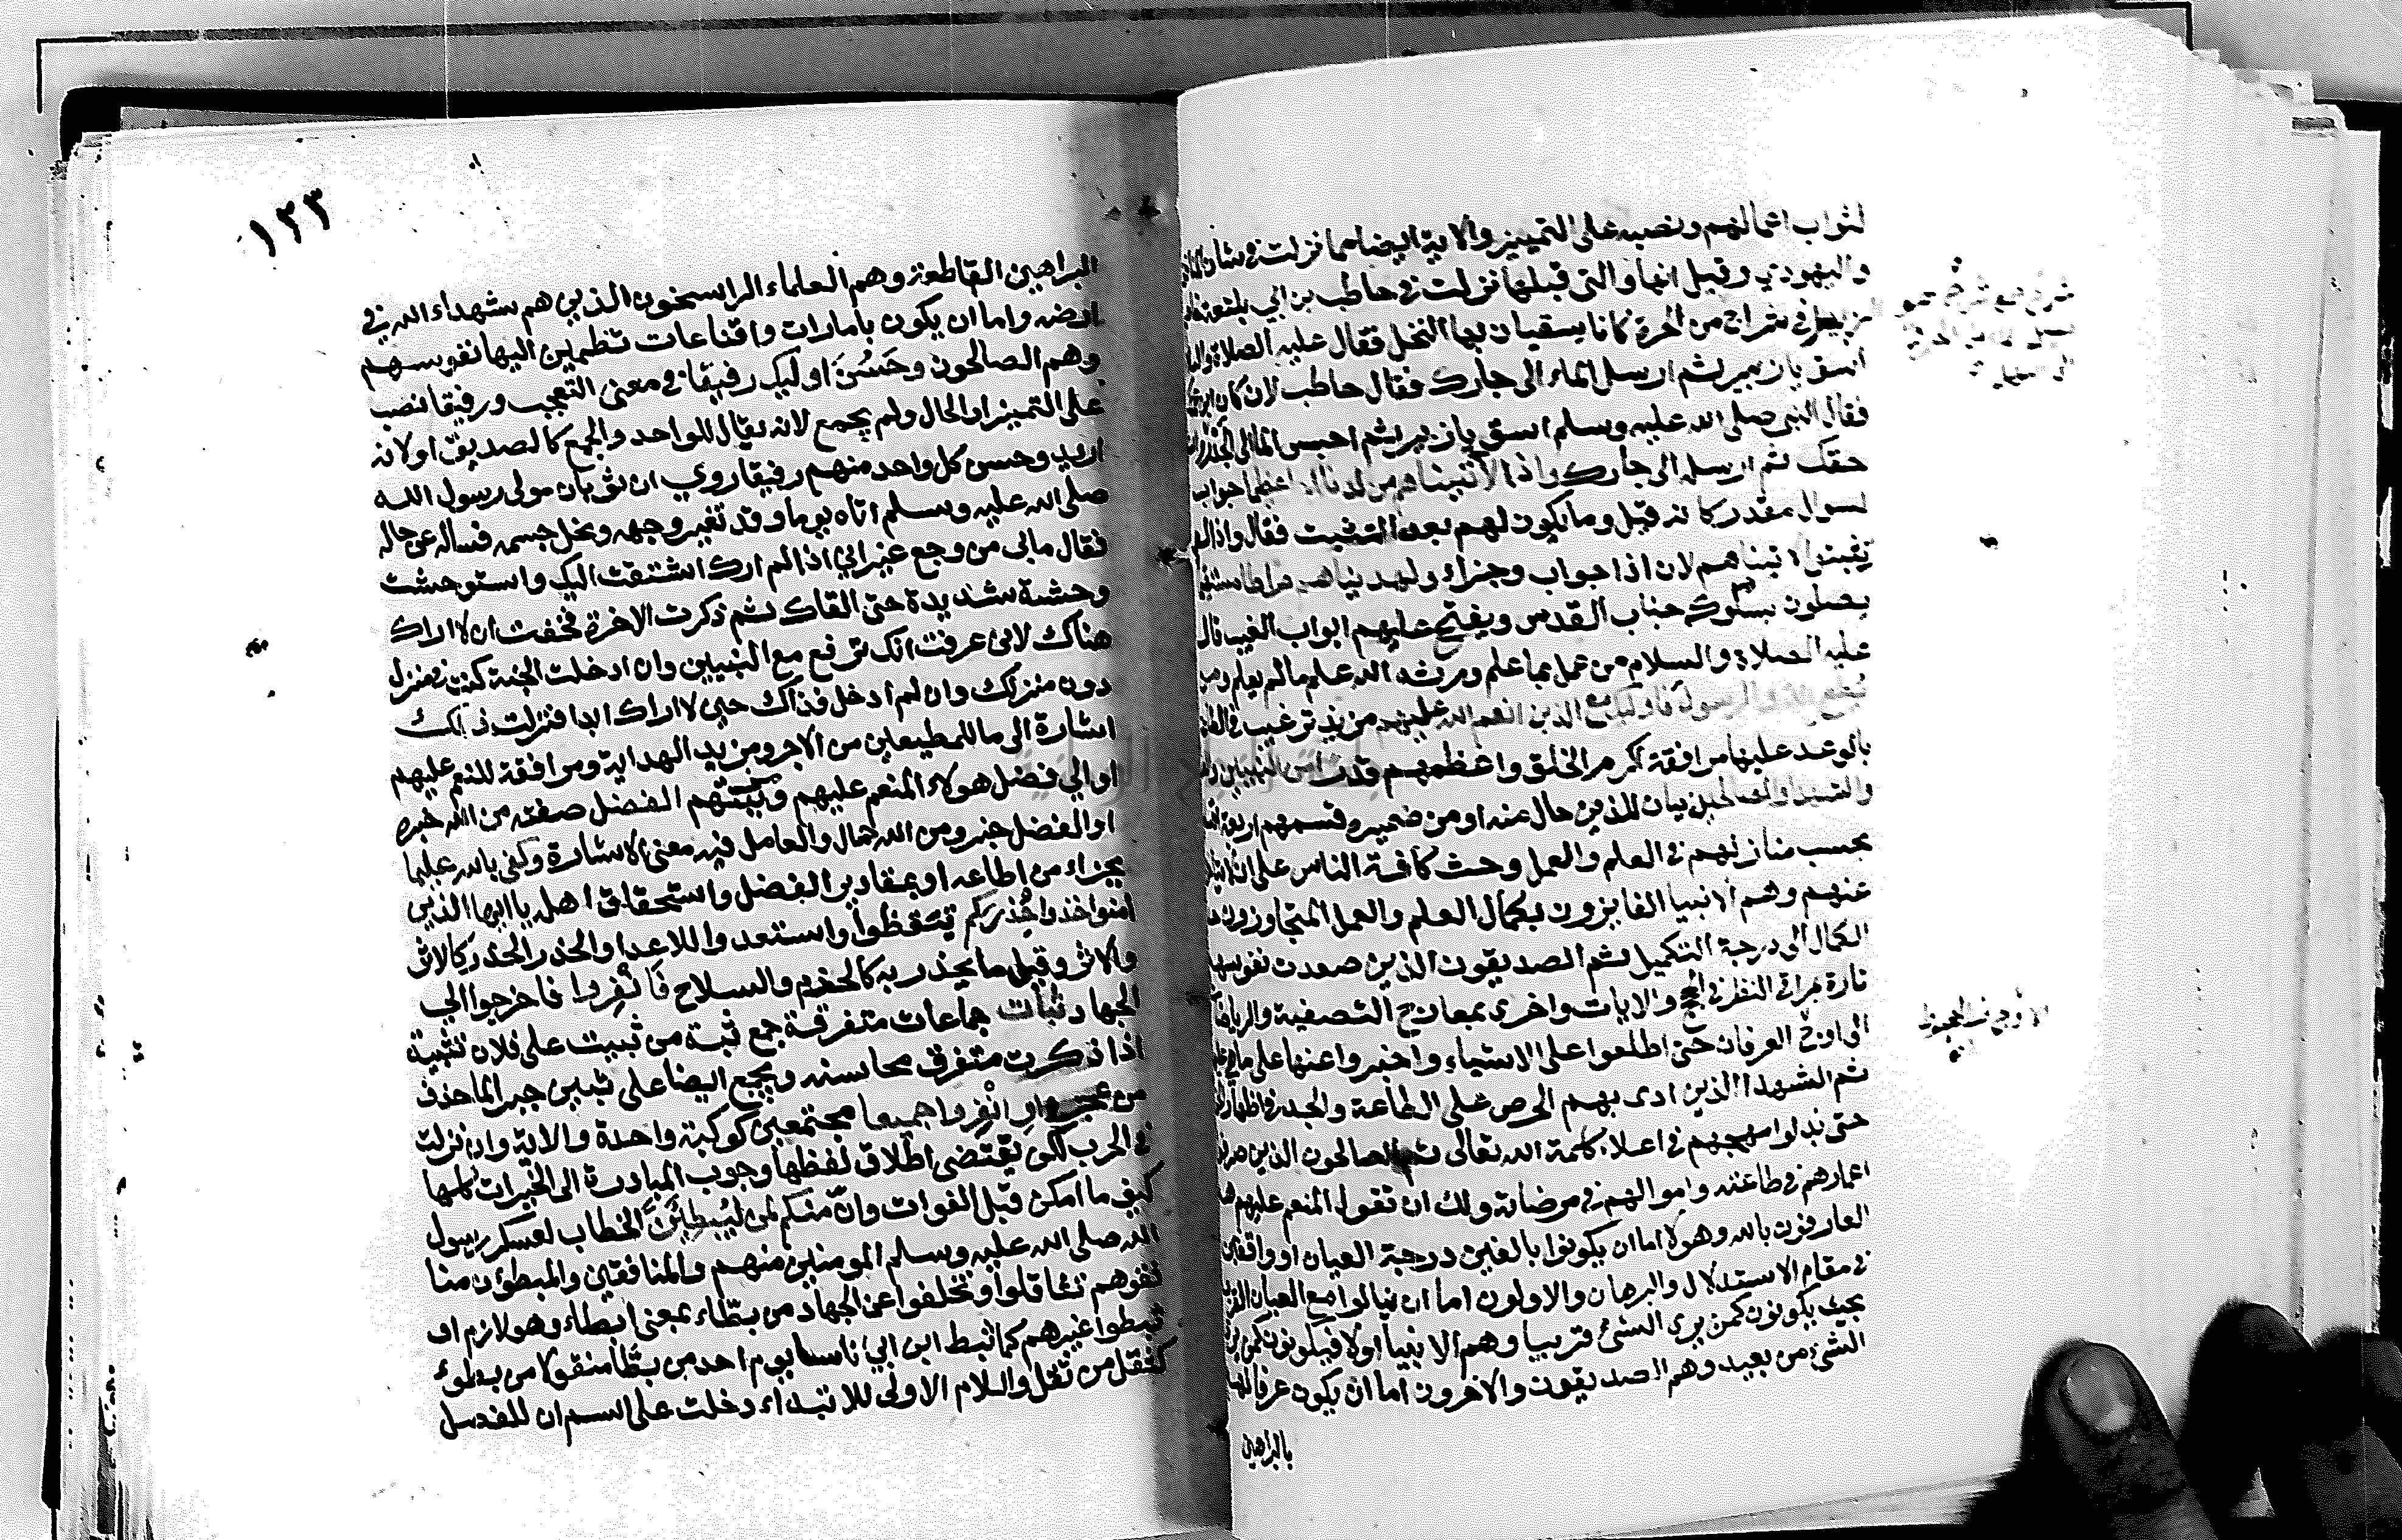 لثواب اعمالهم ونصبه على التمييز والاية ايضا مما نزلت في شان المنافق
واليهودي وقيل انها والتي قبلها نزلت في حاطب بن ابي بلتعة خاصم
زبيرا في شراج من الحرة كانا يسقيان بها النخل فقال عليه الصلاة والسلام
اسق يا زبير ثم ارسل الماء الى جارك فقال حاطب لان كان ابن عمتك
فقال النبي صلى الله عليه وسلم اسق يا زبير ثم احبس الماء الى الجدر
حقك ثم ارسله الى جارك واذا لاتيناهم من لدنا اجرا عظيما جواب
لسوال مقدر كانه قيل وما يكون لهم بعد التثبيت فقال واذا لو
تثبتوا لاتيناهم لان اذا جواب وجزاء ولهديناهم صراطا مستقيما
يصلون بسلوكه جناب القدس ويفتح عليهم ابواب الغيب قال
عليه الصلاة والسلام من عمل بما علم ورثه الله علم ما لم يعلم ومن
يطع الله والرسول فاوليك مع الذين انعم الله عليهم مزيد ترغيب في الطاعة
بالوعد عليها مرافقة اكرم الخلق واعظمهم قدرا من النبيين
والشهدا والصالحين بيان للذين حال منه او من ضميره قسمهم اربعة اقسام
بحسب منازلهم في العلم والعمل وحث كافة الناس على ان لا يتاخروا
عنهم وهم الانبيا الفايزون بكمال العلم والعمل المتجاوزون حد
الكمال الى درجة التكميل ثم الصديقون الذين صعدت نفوسهم
تارة بمراقي النظر في الحجج والايات واخرى بمعارج التصفية والرياضات
الى اوج العرفان حتى اطلعوا على الاشياء واخبروا عنها على ما هي عليها
ثم الشهدا الذين ادى بهم الحرص على الطاعة والجد في اظهار الحق
حتى بذلوا مهجهم في اعلاء كلمة الله تعالى ثم الصالحون الذين صرفوا
اعمارهم في طاعته واموالهم في مرضاته ولك ان تقول المنعم عليهم هم
العارفون بالله وهولا اما ان يكونوا بالغين درجة العيان او واقفين
في مقام الاستدلال والبرهان والاولون اما ان ينالوا مع العيان القرب
بحيث يكونون كمن يرى الشئ قريبا وهم الانبيا اولا فيكونون كمن يرى
الشئ من بعيد وهم الصديقون والاخرون اما ان يكون عرفانهم
بالبراهين
١٢٣
البراهين القاطعة وهم العلماء الراسخون الذين هم شهداء الله في
ارضه واما ان يكون بامارات واقناعات تطمين اليها نفوسهم
وهم الصالحون وحَسُنَ اوليك رفيقا في معنى التعجب ورفيقا نصب
على التمييز او الحال ولم يجمع لانه يقال للواحد والجمع كالصديق او لانه
اريد وحسن كل واحد منهم رفيقا روي ان ثوبان مولى رسول الله
صلى الله عليه وسلم اتاه يوما وقد تغير وجهه ونحل جسمه فساله عن حاله
فقال مابي من وجع غير اني اذا لم ارك اشتقت اليك واستوحشت
وحشة شديدة حتى القاك ثم ذكرت الاخرة فخفت ان لا اراك
هناك لاني عرفت انك ترفع مع النبيين وان ادخلت الجنة كنت في منزل
دون منزلك وان لم ادخل فذاك حين لا اراك ابدا فنزلت ذلك
اشارة الى ما للمطيعين من الاجر ومزيد الهداية ومرافقة المنعم عليهم
او الي فضل هولاء المنعم عليهم ومزيتهم الفضل صفته من الله خبره
او الفضل خبر ومن الله حال والعامل فيه معنى الاشارة وكفى بالله عليما
بجزاء من اطاعه او بمقادير الفضل واستحقاق اهله يا ايها الذين
امنوا خذوا حِذْرَكم تيقظوا واستعدوا للاعدا والحذر الحذر كالاثر
والاثر وقيل ما يحذر به كالحزم والسلاح فَانْفِروا فاخرجوا الي
الجهاد ثُبَات جماعات متفرقة جمع ثبة من ثبيت على فلان تثبية
اذا ذكرت متفرق محاسنه ويجمع ايضا على ثبين جبرا لما حذف
من عجزه او انْفِروا جميعا مجتمعين كوكبة واحدة والاية وان نزلت
في الحرب لكن يقتضى اطلاق لفظها وجوب المبادرة الى الخيرات كلها
كيف ما امكن قبل الفوات وانّ منكم لمن لَيُبَطِّئَنَّ الخطاب لعسكر رسول
الله صلى الله عليه وسلم المومنين منهم والمنافقين والمبطؤن منا
فقوهم تثاقلوا وتخلفوا عن الجهاد من بطّاء بمعنى ابطاء وهو لازم او
ثبطوا غيرهم كما ثبط ابن ابي ناسا يوم احد من بطّا منقولا من بطوء
كثقل من ثقل واللام الاولى للابتداء دخلت على اسم ان للفصل